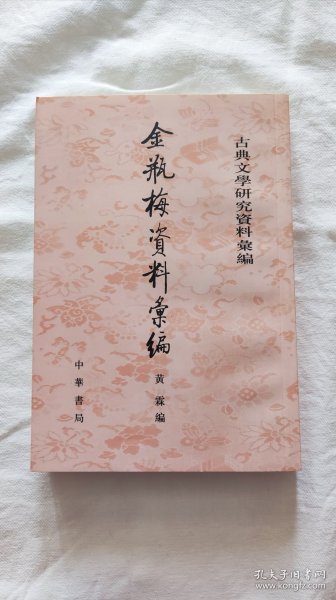 古典文學研究資料彙編
金瓶梅資料彙編
黃霖編
中華書局
孔夫子旧书网
www.kongfz.com